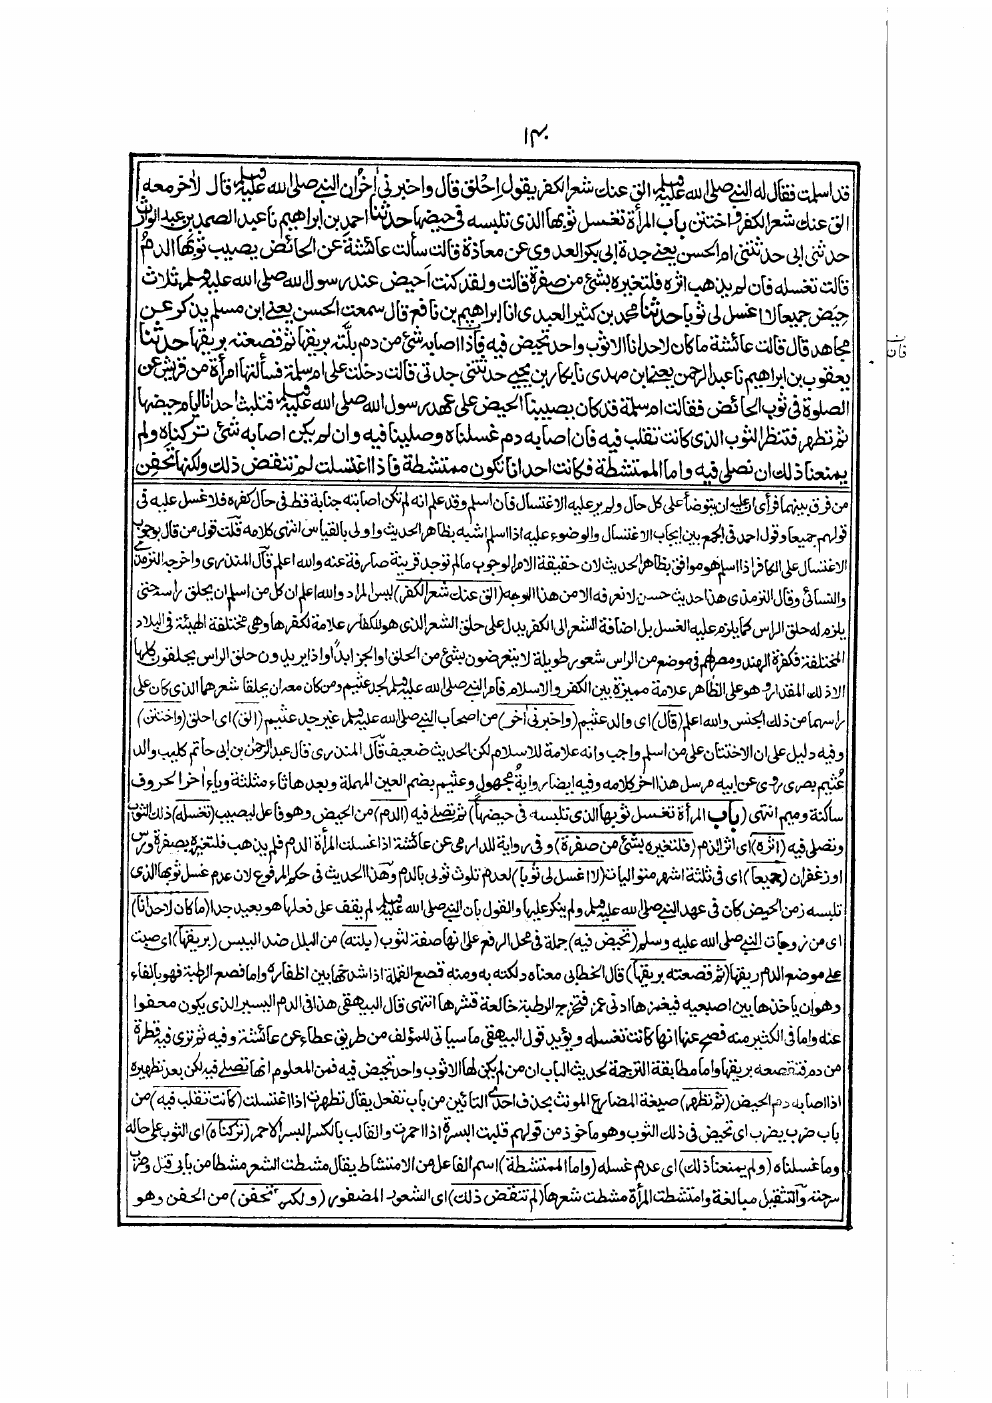 ١٤٠
قد اسلمت فقال له النبي صلى الله عليه وسلم الق عنك شعر الكفر يقول احلق قال واخبرني اٰخر ان النبي صلى الله عليه وسلم قال لاٰخر معه
الق عنك شعر الكفر واختتن باب المرأة تغسل ثوبها الذي تلبسه في حيضها حدثنا احمد بن ابراهيم نا عبد الصمد بن عبد الوارث
حدثني ابي حدثتني ام الحسن يعني جدة ابي بكر العدوي عن معاذة قالت سألت عائشة عن الحائض يصيب ثوبها الدم
قالت تغسله فان لم يذهب اثره فلتغيره بشئ من صفرة قالت ولقد كنت احيض عند رسول الله صلى الله عليه وسلم ثلاث
حيض جميعا لا اغسل لي ثوبا حدثنا محمد بن كثير العبدي انا ابراهيم بن نافع قال سمعت الحسن يعني ابن مسلم يذكر عن
مجاهد قال قالت عائشة ما كان لاحدانا الا ثوب واحد تحيض فيه فاذا اصابه شئ من دم بلّته بريقها ثم قصعته بريقها حدثنا
يعقوب بن ابراهيم نا عبد الرحمن يعني ابن مهدي نا بكار بن يحيى حدثتني جدتي قالت دخلت على ام سلمة فسألتها امرأة من قريش عن
الصلوة في ثوب الحائض فقالت ام سلمة قد كان يصيبنا الحيض على عهد رسول الله صلى الله عليه وسلم فتلبث احدانا ايام حيضها
ثم تطهر فتنظر الثوب الذي كانت تقلب فيه فان اصابه دم غسلناه وصلينا فيه وان لم يكن اصابه شئ تركناه ولم
يمنعنا ذلك ان نصلي فيه واما الممتشطة فكانت احدانا تكون ممتشطة فاذا اغتسلت لم تنقض ذلك ولكنها تحفن
من فرق بينهما فرأى عليه ان يتوضأ على كل حال ولم ير عليه الاغتسال فان اسلم وقد علم انه لم تكن اصابته جنابة قط في حال كفره فلا غسل عليه في
قولهم جميعا وقول احمد في الجمع بين ايجاب الاغتسال والوضوء عليه اذا اسلم اشبه بظاهر الحديث واولى بالقياس انتهى كلامه قلت قول من قال بوجوب
الاغتسال على الكافر اذا اسلم هو موافق بظاهر الحديث لان حقيقة الامر الوجوب ما لم توجد قرينة صارفة عنه والله اعلم قال المنذري واخرجه الترمذي
والنسائي وقال الترمذي هذا حديث حسن لا نعرفه الا من هذا الوجه (الق عنك شعر الكفر) ليس المراد والله اعلم ان كل من اسلم ان يحلق راسه حتى
يلزم له حلق الراس كما يلزم عليه الغسل بل اضافة الشعر الى الكفر يدل على حلق الشعر الذي هو للكفار علامة لكفرها وهي مختلفة الهيئة في البلاد
المختلفة فكفرة الهند ومصر لهم في موضع من الراس شعور طويلة لا يتعرضون بشئ من الحلق او الجز ابدًا واذا يريدون حلق الراس يحلقون كلها
الا ذلك المقدار وهو على الظاهر علامة مميزة بين الكفر والاسلام فامر النبي صلى الله عليه وسلم لجد عثيم ومن كان معه ان يحلقا شعرهما الذي كان على
راسهما من ذلك الجنس والله اعلم (قال) اي والد عثيم (واخبرني اٰخر) من اصحاب النبي صلى الله عليه وسلم غير جد عثيم (الق) اي احلق (واختتن)
وفيه دليل على ان الاختتان على من اسلم واجب وانه علامة للاسلام لكن الحديث ضعيف قال المنذري قال عبد الرحمن بن ابي حاتم كليب والد
عُثيم بصري روى عن ابيه مرسل هذا اٰخر كلامه وفيه ايضا رواية مجهول وعثيم بضم العين المهملة وبعدها ثاء مثلثة وياء اٰخر الحروف
ساكنة وميم انتهى (باب المرأة تغسل ثوبها الذي تلبسه في حيضها) ثم تصلي فيه (الدم) من الحيض وهو فاعل ليصيب (تغسله) ذلك الثوب
وتصلي فيه (اثره) اي اثر الدم (فلتغيره بشئ من صفرة) وفي رواية للدارمي عن عائشة اذا غسلت المرأة الدم فلم يذهب فلتغيره بصفرة ورس
او زعفران (جميعا) اي في ثلثة اشهر متواليات (لا اغسل لي ثوبا) لعدم تلوث ثوبي بالدم وهذا الحديث في حكم المرفوع لان عدم غسل ثوبها الذي
تلبسه زمن الحيض كان في عهد النبي صلى الله عليه وسلم ولم ينكر عليها والقول بان النبي صلى الله عليه وسلم لم يقف على فعلها هو بعيد جدا (ما كان لاحدانا)
اي من زوجات النبي صلى الله عليه وسلم (تحيض فيه) جملة في محل الرفع على انها صفة لثوب (بلته) من البلل ضد اليبس (بريقها) اي صبت
على موضع الدم ريقها (ثم قصعته بريقها) قال الخطابي معناه دلكته به ومنه قصع القملة اذا شدخها بين اظفاره واما فصع الرطبة فهو بالفاء
وهو ان ياخذها بين اصبعيه فيغمزها ادنى غمز فتخرج الرطبة خالعة قشرها انتهى قال البيهقي هذا في الدم اليسير الذي يكون معفوا
عنه واما في الكثير منه فصح عنها انها كانت تغسله ويؤيد قول البيهقي ما سياتي للمؤلف من طريق عطاء عن عائشة وفيه ثم ترى فيه قطرة
من دم فتقصعه بريقها واما مطابقة الترجمة لحديث الباب ان من لم يكن لها الا ثوب واحد تحيض فيه فمن المعلوم انها تصلي فيه لكن بعد تطهيره
اذا اصابه دم الحيض (ثم تطهر) صيغة المضارع المونث بحذف احدى التائين من باب تفعل يقال تطهرت اذا اغتسلت (كانت تقلب فيه) من
باب ضرب يضرب اي تحيض في ذلك الثوب وهو ماخوذ من قولهم قلبت البسرة اذا احمرت والقالب بالكسر البسر الاحمر (تركناه) اي الثوب على حاله
وما غسلناه (ولم يمنعنا ذلك) اي عدم غسله (واما الممتشطة) اسم الفاعل من الامتشاط يقال مشطت الشعر مشطا من بابي قتل وضرب
سرحته والتثقيل مبالغة وامتشطت المرأة مشطت شعرها (لم تنقض ذلك) اي الشعور المضفور (ولكنها تحفن) من الحفن وهو